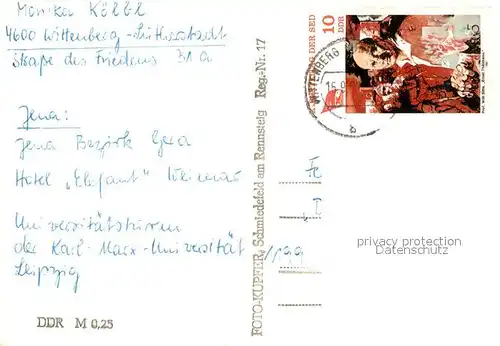 Monika Kölbl
4600 Wittenberg-Lutherstadt
Straße des Friedens 31a
Jena:
Jena Bezirk Gera
Hotel „Elefant“ Weimar
Universitätsturm
der Karl-Marx-Universität
Leipzig
DDR M 0,25
FOTO-KUPFER, Schmiedefeld am Rennsteig Reg.-Nr. 17
DER SED
10 DDR
WITTENBERG
privacy protection
Datenschutz